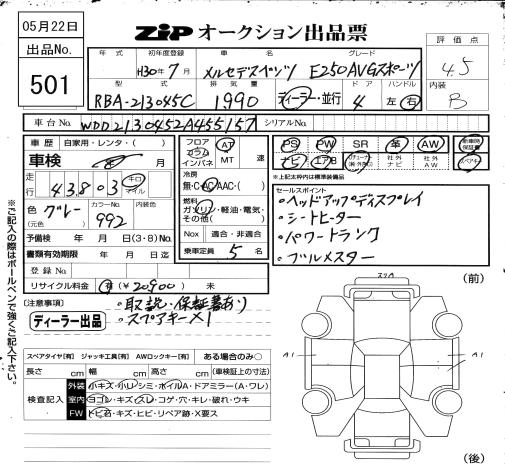 05月22日
出品No.
501
ZIP オークション出品票
年式 初年度登録 車名 グレード
H30年7月 メルセデスベンツ E250AVGスポーツ
評価点
4.5
内装
B
型式 排気量 ドア ハンドル
RBA-213045C 1,990 ディーラー・並行 4 左 右
車台No. WDD2130452A455157 シリアルNo.
車歴 自家用・レンタ・( )
車検 月
走行 43803 キロ マイル
色(元色) グレー カラーNo. 992
予備検 年 月 日(3・8)No.
書類有効期限 年 月 日迄
登録No.
リサイクル料金 有(¥20900) 未
フロア コラム インパネ AT MT 速
冷房 無・C・AC・AAC・( )
燃料 ガソリン・軽油・電気・その他( )
Nox 適合・非適合
乗車定員 5 名
PS PW SR 革 AW 新車時保証書
ナビ エアB 社外ナビ 社外AW スペアキー
※上記太枠内は標準装備品
セールスポイント
・ヘッドアップディスプレイ
・シートヒーター
・パワートランク
・ブルメスター
(注意事項)
・取説・保証書あり
・スペアキー×1
ディーラー出品
スペアタイヤ[有] ジャッキ工具[有] AWロックキー[有] ある場合のみ〇
長さ cm 幅 cm 高さ cm (車検証上の寸法)
検査記入
外装 小キズ・小レ・シミ・ホイルA・ドアミラー(A・ワレ)
室内 ヨゴレ・キズ・スレ・コゲ・穴・キレ・破れ・ウキ
FW トビ石・キズ・ヒビ・リペア跡・X要ス
※ご記入の際はボールペンで強くご記入下さい。
(前)
スリA
A1
A1
(後)